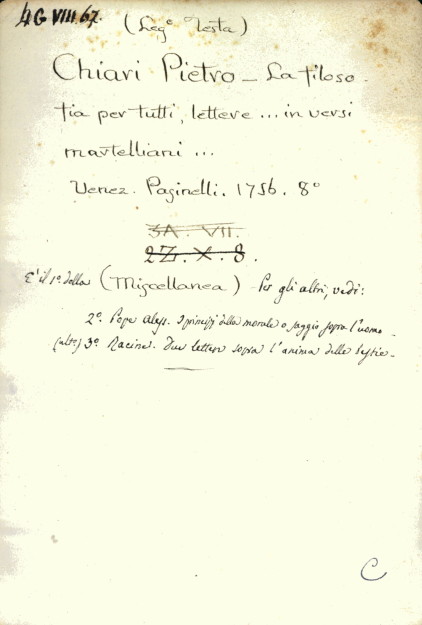 4G VIII 67.
(Leg° Testa)
Chiari Pietro - La filoso-
fia per tutti, lettere ... in versi
martelliani ...
Venez. Paginelli. 1756. 8°
3A. VII.
2Z. X. 8.
E' il 1° della (Miscellanea) - Per gli altri, vedi:
2°. Pope Aless. I principj della morale o saggio sopra l'uomo -
(altro) 3°. Racine. Due lettere sopra l'anima delle bestie -
C